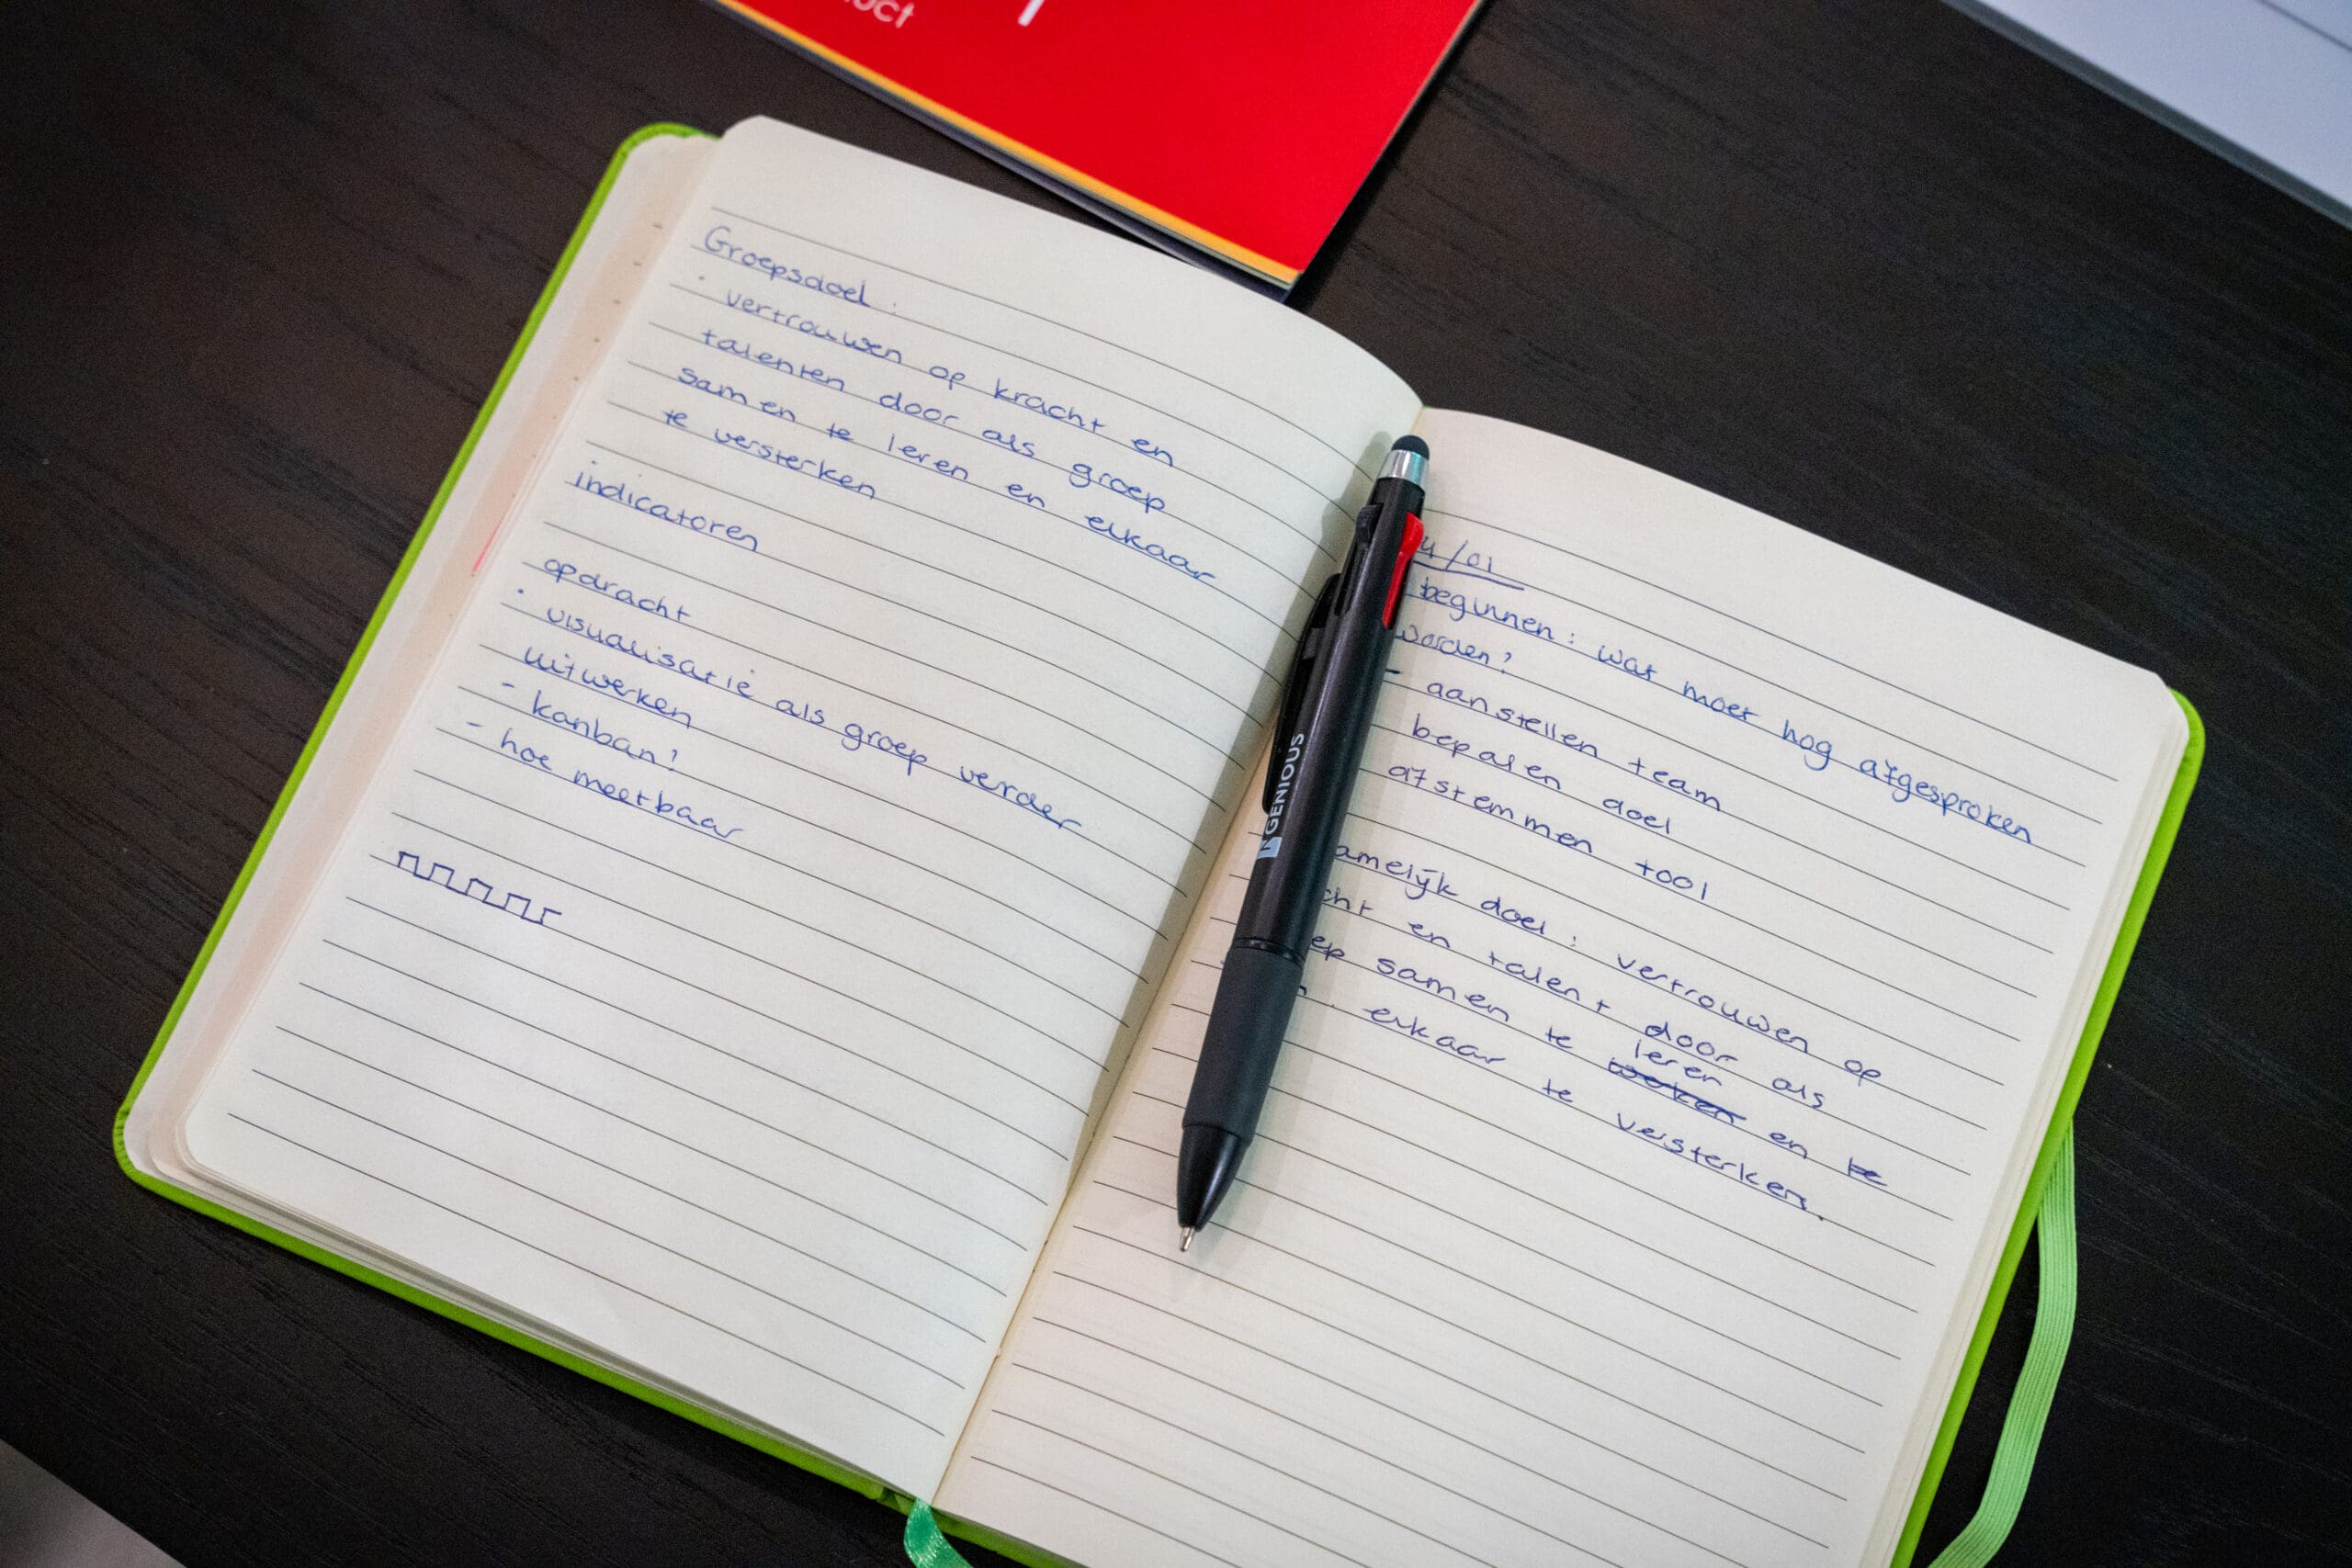 uct
Groepsdoel :
· vertrouwen op kracht en
talenten door als groep
samen te leren en elkaar
te versterken
indicatoren
opdracht
· visualisatie als groep verder
uitwerken
- kanban?
- hoe meetbaar
4/01
beginnen : wat moet nog afgesproken
worden?
- aanstellen team
bepalen doel
afstemmen tool
amelijk doel : vertrouwen op
cht en talent door als
ep samen te leren en te
n elkaar te versterken.
GENIOUS